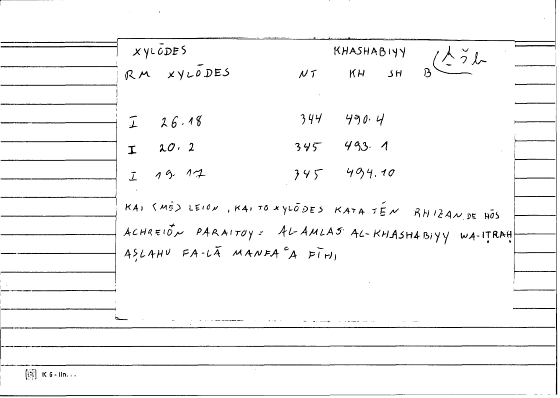 XYLŌDES KHASHABIYY
RM XYLŌDES NT KH SH B
I 26.18 344 490.4
I 20.2 345 493.1
I 19.17 345 494.10
KAI <MĒ> LEION, KAI TO XYLŌDES KATA TĒN RHIZAN DE HŌS
ACHREION PARAITOY = AL-AMLAS AL-KHASHABIYY WA-IṬRAḤ
AṢLAHU FA-LĀ MANFAʿA FĪHI
K 6 - lin...